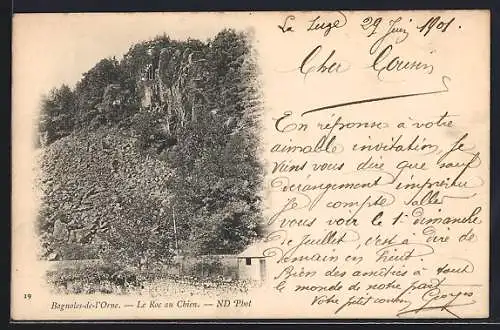 La Suze 29 Juin 1901.
Cher Cousin
En réponse à votre
aimable invitation, je
viens vous dire que sauf
dérangement imprévu
je compte aller
vous voir le 1er dimanche
de Juillet, c'est à dire de
demain en huit
Bien des amitiés à tout
le monde de notre part
Votre petit cousin Georges
19
Bagnoles-de-l'Orne. — Le Roc au Chien. — ND Phot